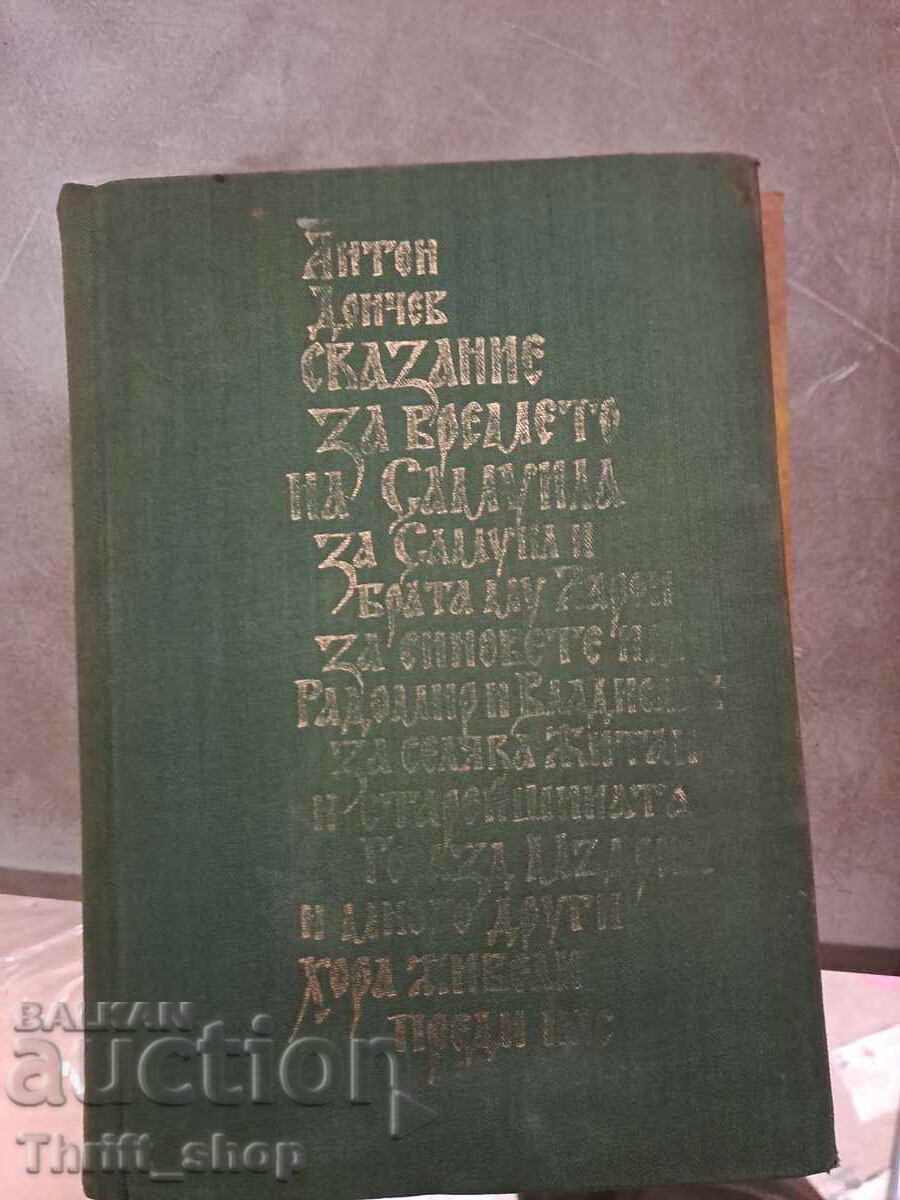 Антон
Дончев
Сказание
за времето
на Самуила
за Самуил и
брата му Арон
за синовете им
Радомир и Владислав
за селяка Житан
и старейшината
Горазд Мъдри
и много други
хора живели
преди нас
BALKAN
auction
Thrift_shop